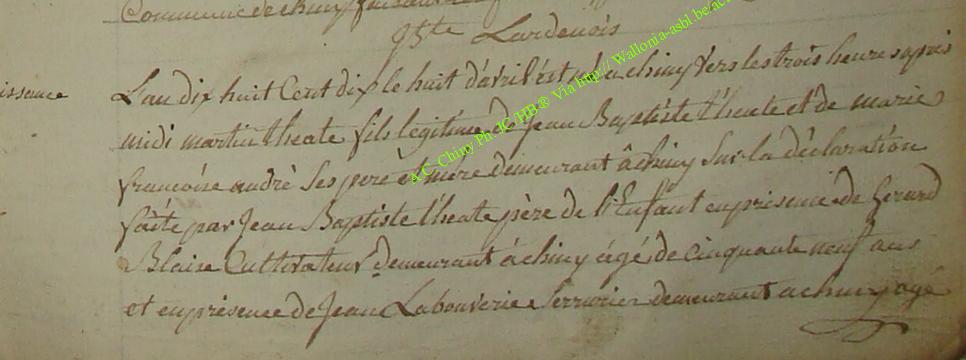 Commune de chiny faisant
J Bte Lardenois
issance
L'an dix huit Cent dix le huit d'avril est né a chiny vers les trois heures apres
midi martin theate fils legitime de Jean Baptiste theate et de marie
francoise andré ses pere et mère demeurant à chiny Sur la déclaration
faite par Jean Baptiste theate père de l'Enfant en presence de Gerard
Blaise Cultivateur demeurant à chiny agé de cinquante neuf ans
et en présence de Jean Labouverie Serrurier demeurant a chiny agé
A.C. Chiny Ph. JC HB ® Via http://Wallonia-asbl.be/ac